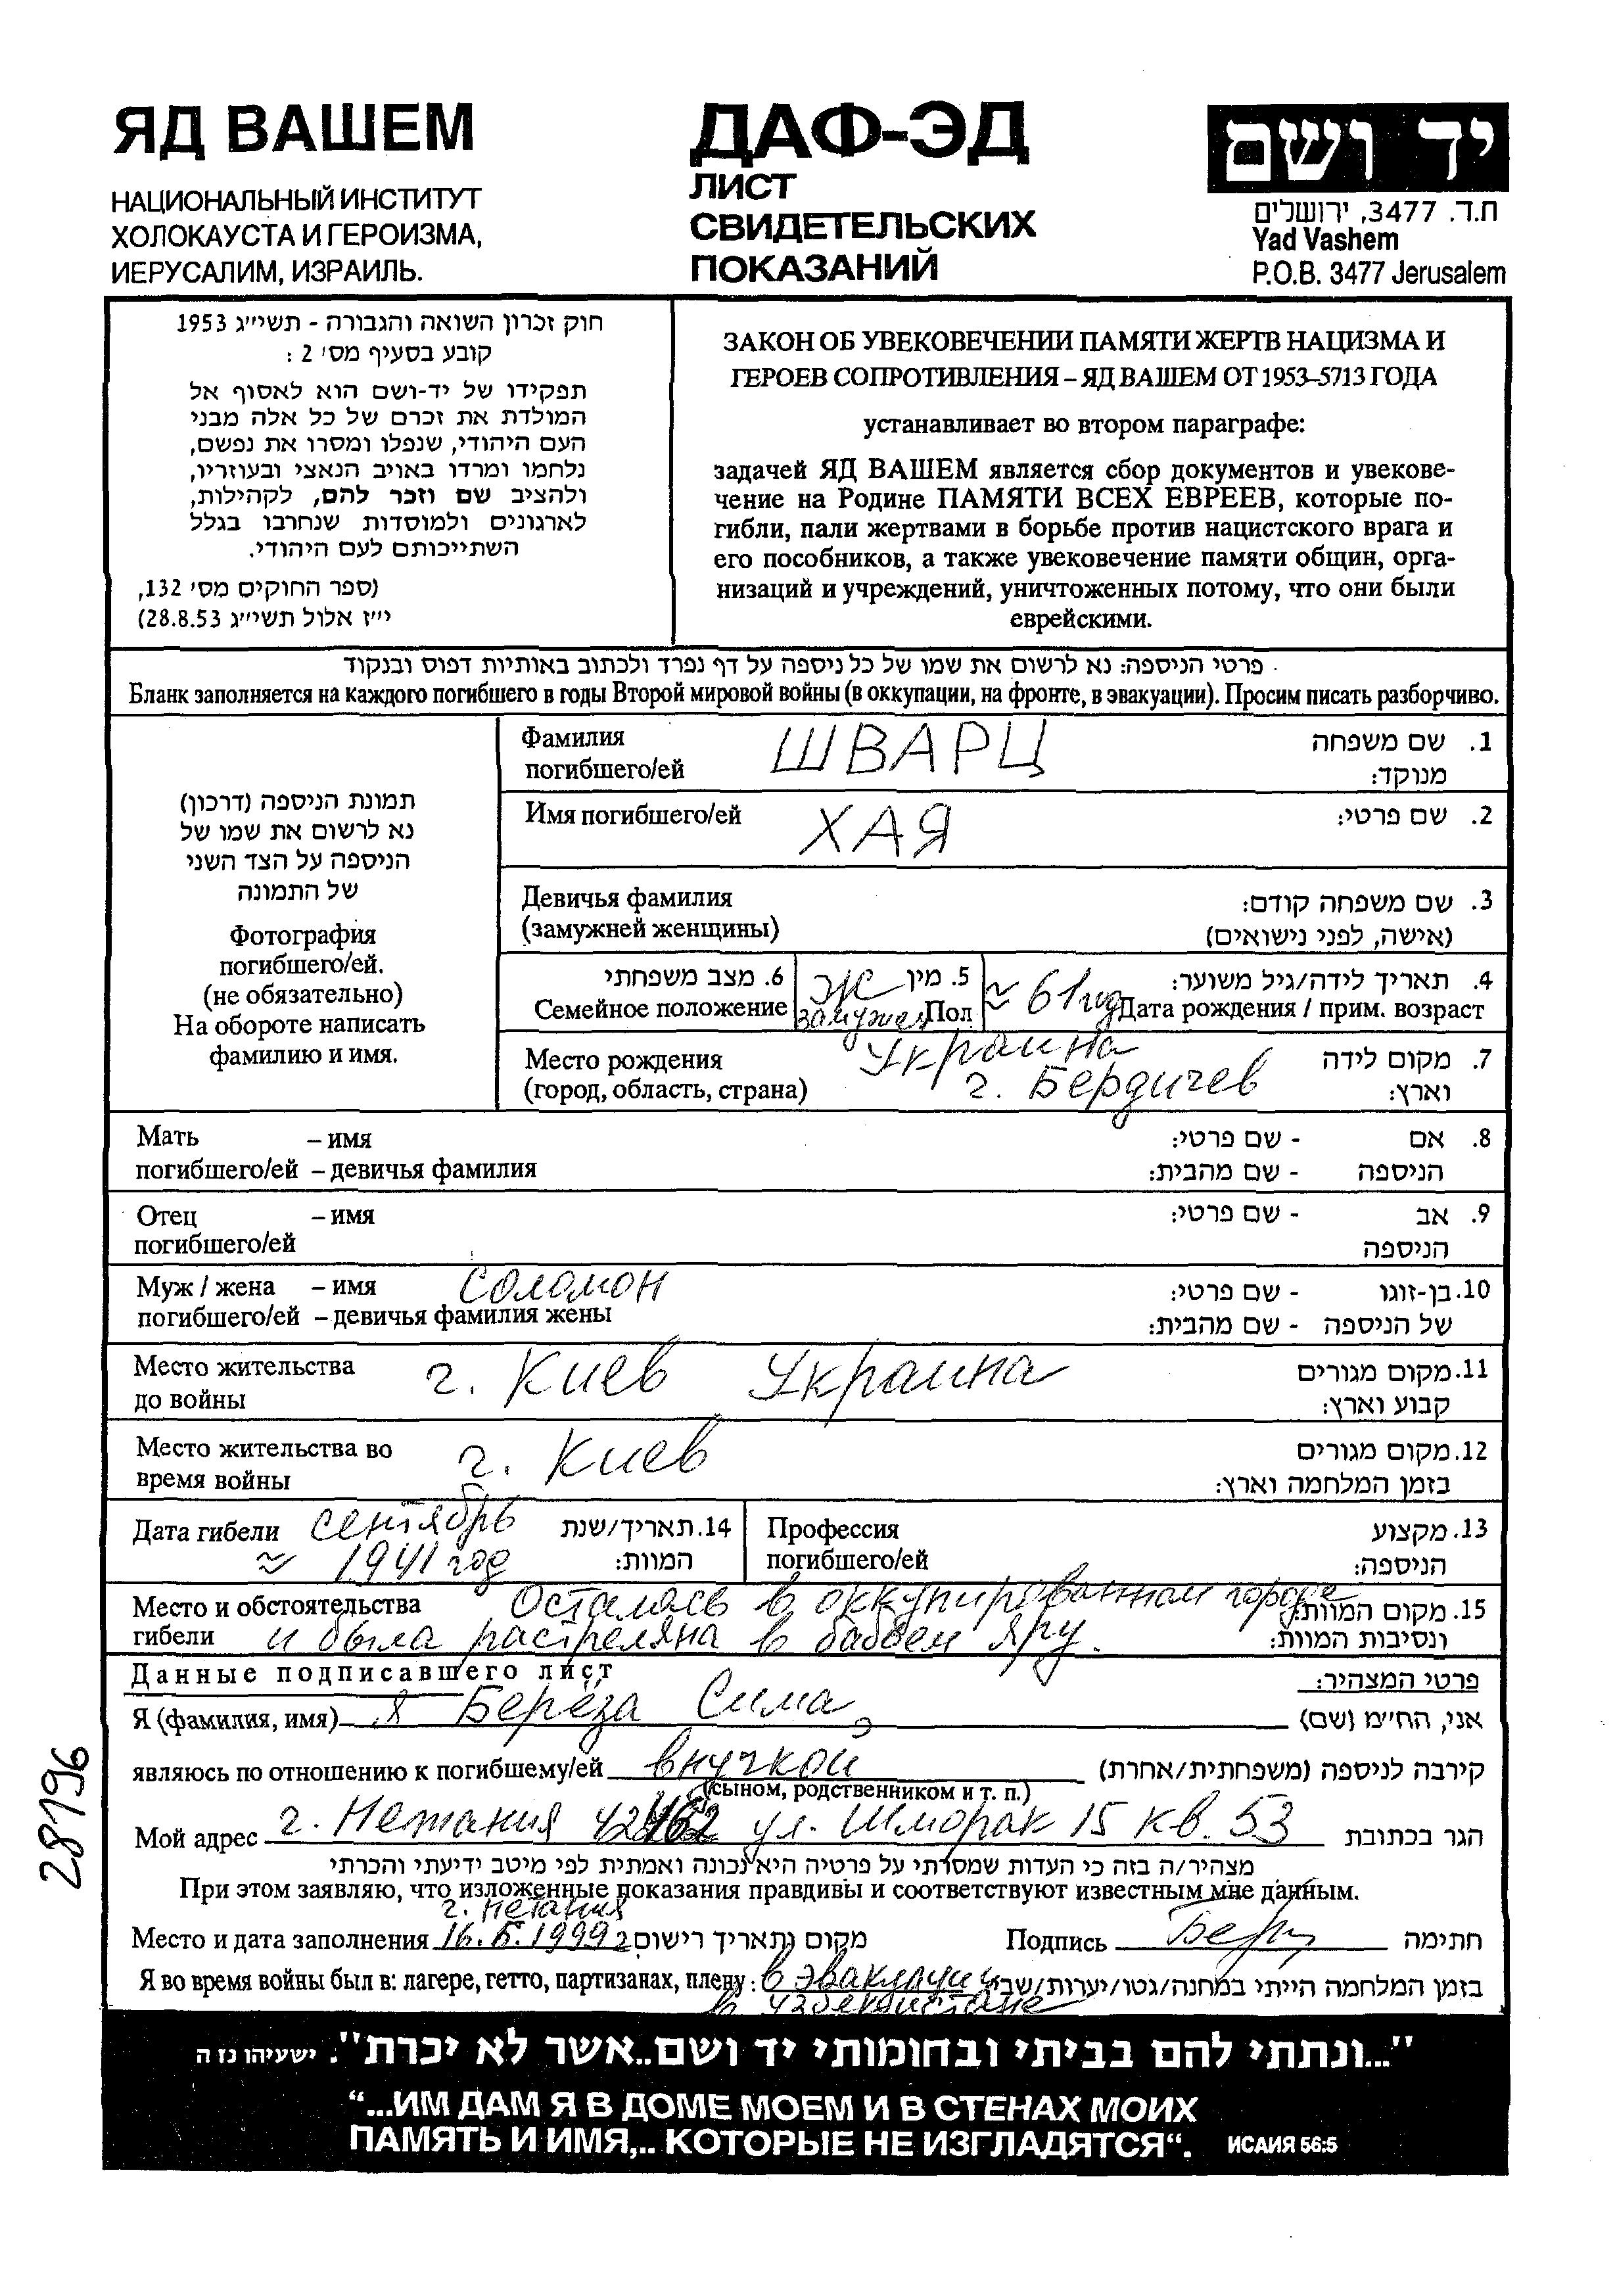 ЯД ВАШЕМ
НАЦИОНАЛЬНЫЙ ИНСТИТУТ
ХОЛОКАУСТА И ГЕРОИЗМА,
ИЕРУСАЛИМ, ИЗРАИЛЬ.
ДАФ-ЭД
ЛИСТ
СВИДЕТЕЛЬСКИХ
ПОКАЗАНИЙ
יד ושם
ת.ד. 3477, ירושלים
Yad Vashem
P.O.B. 3477 Jerusalem
חוק זכרון השואה והגבורה - תשי״ג 1953
קובע בסעיף מס׳ 2 :
תפקידו של יד-ושם הוא לאסוף אל
המולדת את זכרם של כל אלה מבני
העם היהודי, שנפלו ומסרו את נפשם,
נלחמו ומרדו באויב הנאצי ובעוזריו,
ולהציב שם וזכר להם, לקהילות,
לארגונים ולמוסדות שנחרבו בגלל
השתייכותם לעם היהודי.
(ספר החוקים מס׳ 132,
י״ז אלול תשי״ג 28.8.53)
ЗАКОН ОБ УВЕКОВЕЧЕНИИ ПАМЯТИ ЖЕРТВ НАЦИЗМА И
ГЕРОЕВ СОПРОТИВЛЕНИЯ – ЯД ВАШЕМ ОТ 1953–5713 ГОДА
устанавливает во втором параграфе:
задачей ЯД ВАШЕМ является сбор документов и увекове-
чение на Родине ПАМЯТИ ВСЕХ ЕВРЕЕВ, которые по-
гибли, пали жертвами в борьбе против нацистского врага и
его пособников, а также увековечение памяти общин, орга-
низаций и учреждений, уничтоженных потому, что они были
еврейскими.
פרטי הניספה: נא לרשום את שמו של כל ניספה על דף נפרד ולכתוב באותיות דפוס ובנקוד
Бланк заполняется на каждого погибшего в годы Второй мировой войны (в оккупации, на фронте, в эвакуации). Просим писать разборчиво.
תמונת הניספה (דרכון)
נא לרשום את שמו של
הניספה על הצד השני
של התמונה
Фотография
погибшего/ей.
(не обязательно)
На обороте написать
фамилию и имя.
Фамилия ШВАРЦ 1. שם משפחה
погибшего/ей מנוקד:
Имя погибшего/ей ХАЯ 2. שם פרטי:
Девичья фамилия 3. שם משפחה קודם:
(замужней женщины) (אישה, לפני נישואים)
6. מצב משפחתי ж 5. מין ≈ 61 год 4. תאריך לידה/גיל משוער:
Семейное положение замужем Пол Дата рождения / прим. возраст
Место рождения Украина 7. מקום לידה
(город, область, страна) г. Бердичев וארץ:
Мать – имя 8. אם - שם פרטי:
погибшего/ей – девичья фамилия הניספה - שם מהבית:
Отец – имя 9. אב - שם פרטי:
погибшего/ей הניספה
Муж / жена – имя Соломон 10. בן-זוגו - שם פרטי:
погибшего/ей – девичья фамилия жены של הניספה - שם מהבית:
Место жительства г. Киев Украина 11. מקום מגורים
до войны קבוע וארץ:
Место жительства во г. Киев 12. מקום מגורים
время войны בזמן המלחמה וארץ:
Дата гибели сентябрь 14. תאריך/שנת
≈ 1941 год המוות:
Профессия 13. מקצוע
погибшего/ей הניספה:
Место и обстоятельства Осталась в оккупированном городе 15. מקום המוות
гибели и была растреляна в бабьем яру. ונסיבות המוות:
Данные подписавшего лист פרטי המצהיר:
Я (фамилия, имя) я Берёза Сима, אני, החי״מ (שם)
являюсь по отношению к погибшему/ей внучкой קירבה לניספה (משפחתית/אחרת)
(сыном, родственником и т. п.)
Мой адрес г. Нетания 42462 ул. Шморак 15 кв. 53 הגר בכתובת
מצהיר/ה בזה כי העדות שמסרתי על פרטיה היא נכונה ואמתית לפי מיטב ידיעתי והכרתי
При этом заявляю, что изложенные показания правдивы и соответствуют известным мне данным.
г. Нетания
Место и дата заполнения 16.5.1999г מקום ותאריך רישום Подпись חתימה
Я во время войны был в: лагере, гетто, партизанах, плену: в эвакуации בזמן המלחמה הייתי במחנה/גטו/יערות/שבי
в Узбекистане
28196
"...ונתתי להם בביתי ובחומותי יד ושם..אשר לא יכרת". ישעיהו נז ה
“...ИМ ДАМ Я В ДОМЕ МОЕМ И В СТЕНАХ МОИХ
ПАМЯТЬ И ИМЯ,.. КОТОРЫЕ НЕ ИЗГЛАДЯТСЯ“. ИСАИЯ 56:5